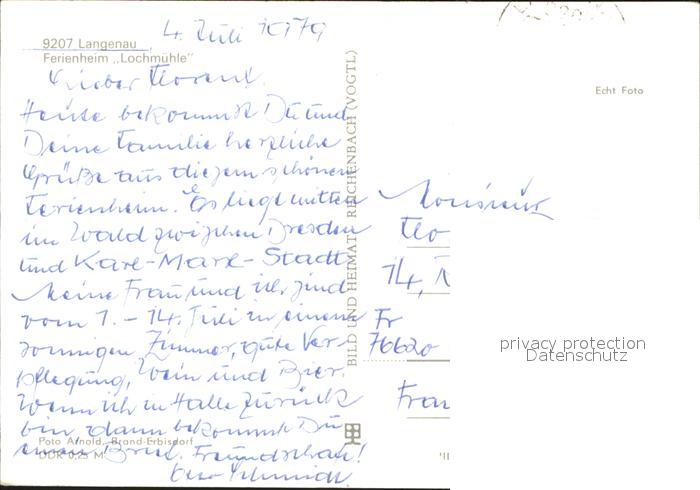 4. Juli 1979
9207 Langenau
Ferienheim „Lochmühle“
Lieber Florent
Heute bekommst Du und
Deine Familie herzliche
Grüße aus diesem schönen
Ferienheim. Es liegt mitten
im Wald zwischen Dresden
und Karl-Marx-Stadt
Meine Frau und ich sind
vom 1. – 14. Juli in einem
sonnigen Zimmer, gute Ver-
pflegung, Wein und Bier.
Wenn ich in Halle zurück
bin dann bekommst Du
einen Brief. Freundschaft!
Schmidt
Foto Arnold, Brand-Erbisdorf
DDR 0,25 M
BILD UND HEIMAT REICHENBACH (VOGTL)
Echt Foto
Monsieur
Flo
14,
Fr
76620
Fran
privacy protection
Datenschutz